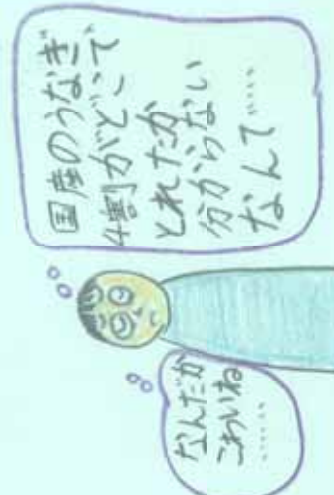 国産のうなぎ
4割がどこで
とれたか
分からない
なんて……
なんだか
こわいね
……